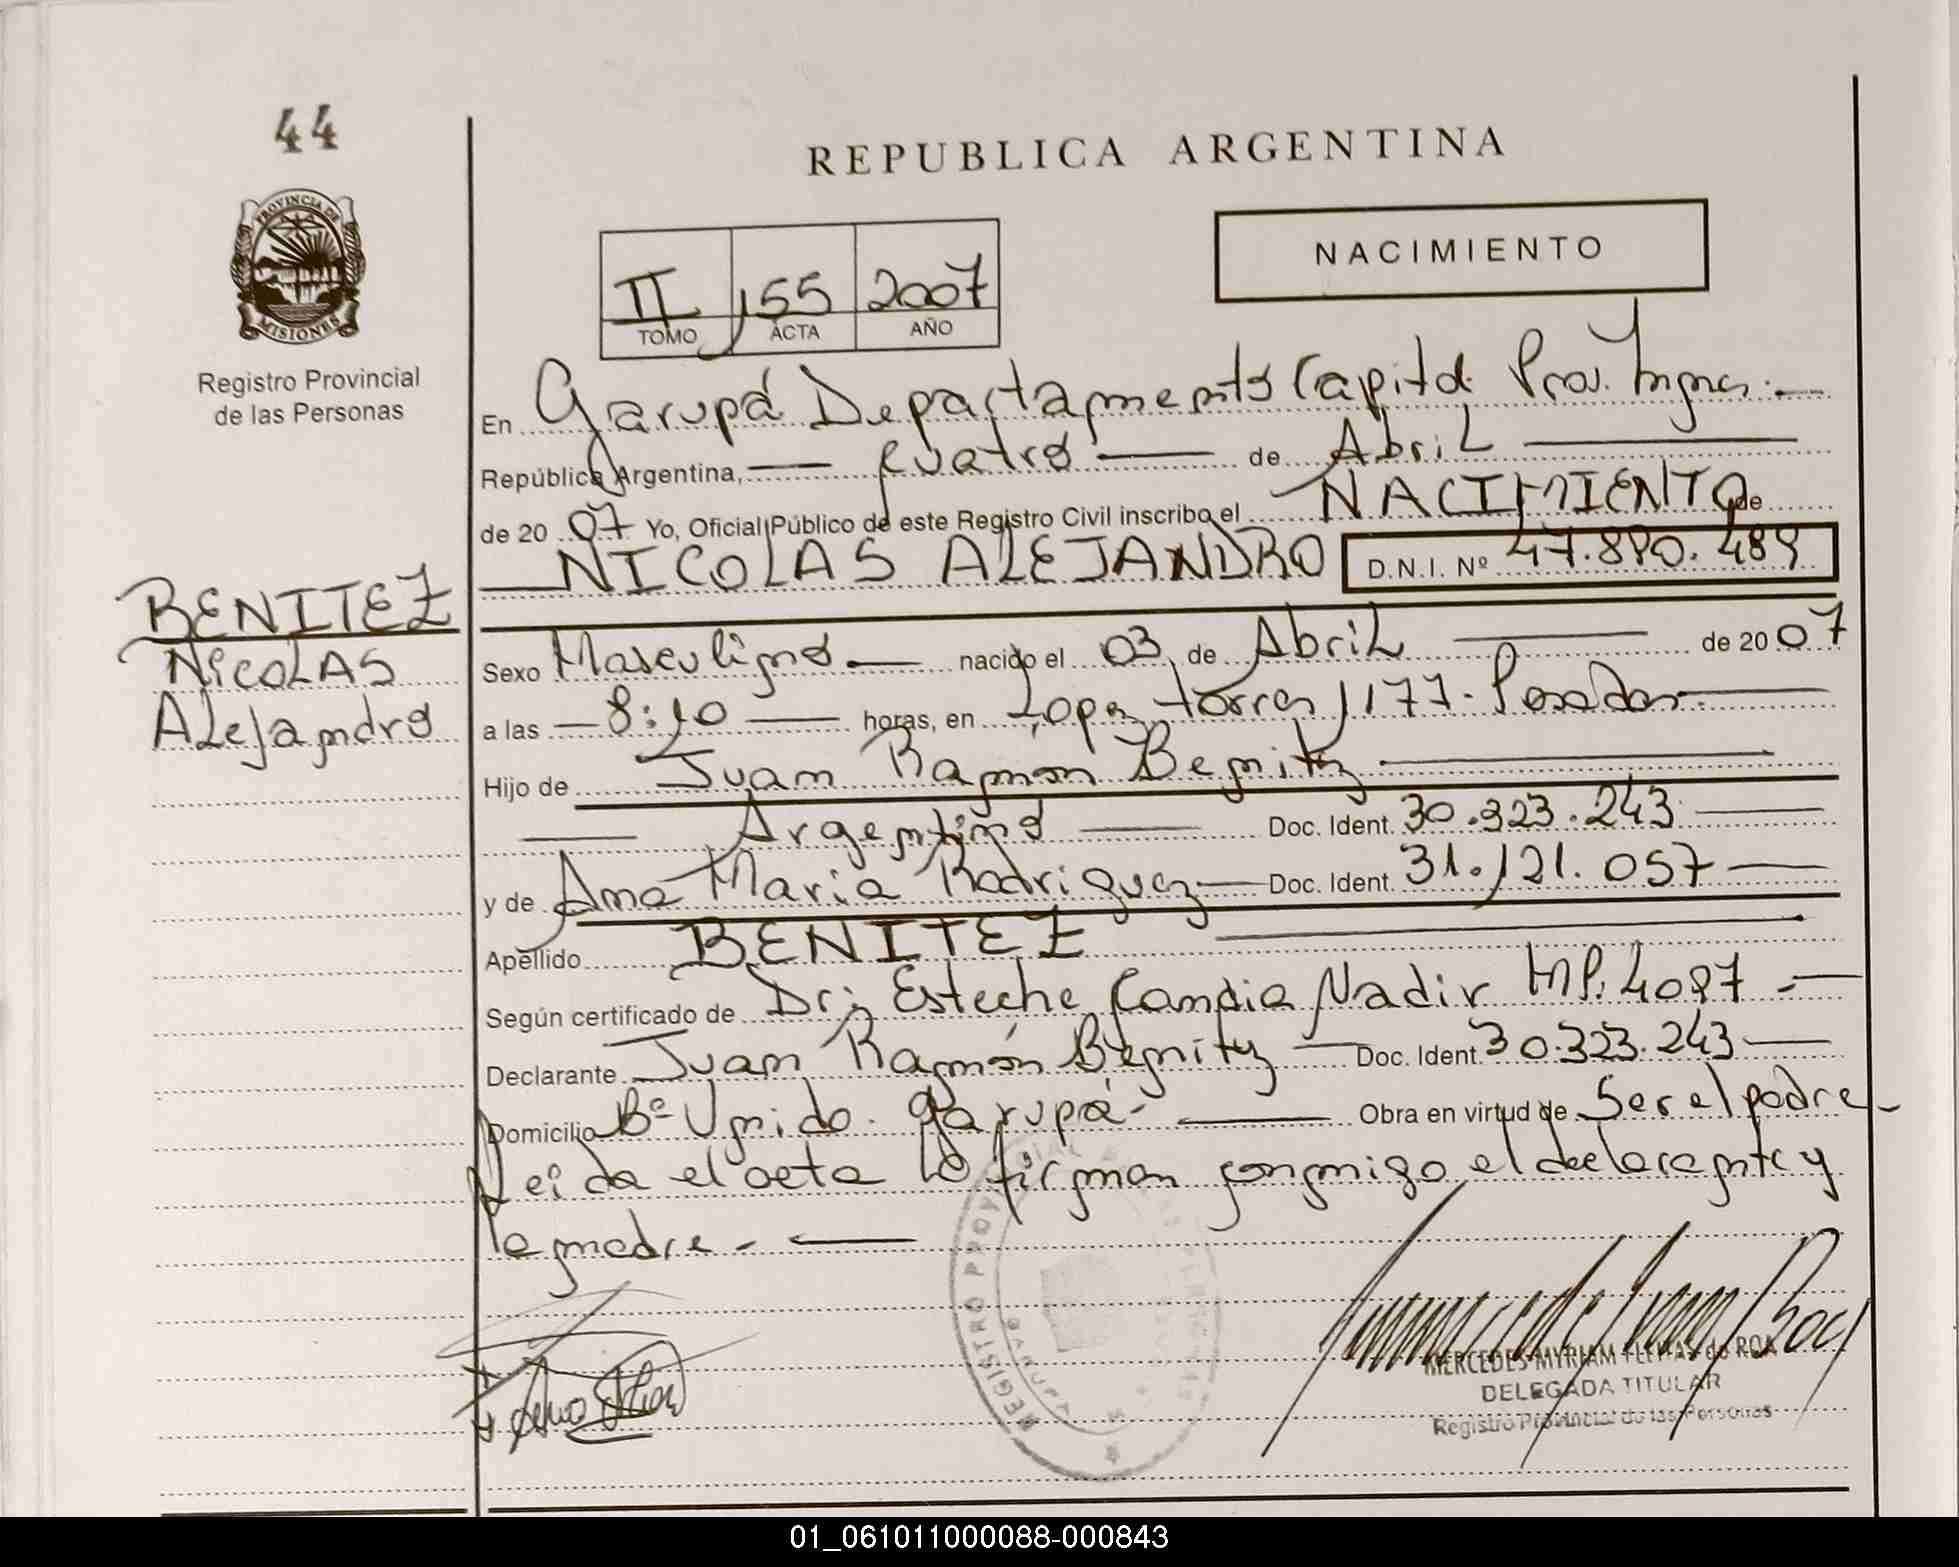 44
PROVINCIA DE
MISIONES
Registro Provincial
de las Personas
REPUBLICA ARGENTINA
II 155 2007
TOMO ACTA AÑO
NACIMIENTO
En Garupá Departamento Capital Prov. Mnes.-
República Argentina, cuatro de Abril
de 20 07 Yo, Oficial Público de este Registro Civil inscribo el NACIMIENTO de
NICOLAS ALEJANDRO D.N.I. Nº 47.890.489
BENITEZ
NicoLAS
ALejandro
Sexo Masculino nacido el 03 de Abril de 20 07
a las 8:10 horas, en Lopez Torres 1177- Posadas-
Hijo de Juan Ramon Benitez
Argentino Doc. Ident. 30.323.243
y de Ana Maria Rodriguez Doc. Ident. 31.121.057
Apellido BENITEZ
Según certificado de Dr: Esteche Candia Nadir MP. 4097 -
Declarante Juan Ramón Benitez Doc. Ident. 30.323.243
Domicilio Bº Unido. Garupá- Obra en virtud de Ser el padre-
Leida el acta lo firman conmigo el declarante y
la madre -
REGISTRO PROVINCIAL
GARUPA
MERCEDES MYRIAM FLEITAS de ROA
DELEGADA TITULAR
Registro Provincial de las Personas
01_061011000088-000843